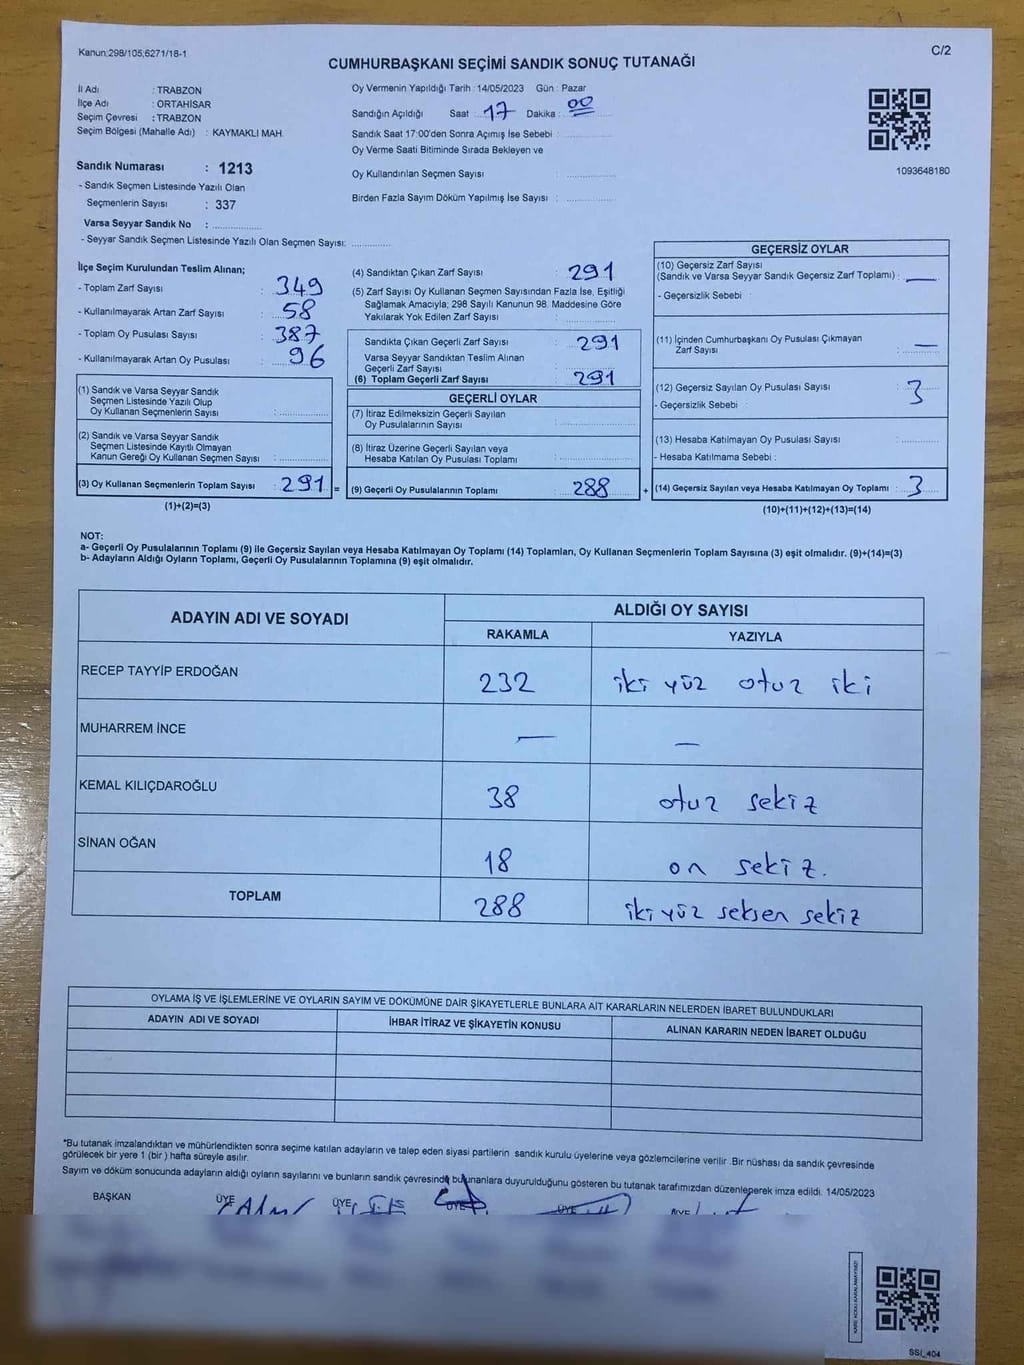 Kanun:298/105;6271/18-1
C/2
CUMHURBAŞKANI SEÇİMİ SANDIK SONUÇ TUTANAĞI
İl Adı : TRABZON
İlçe Adı : ORTAHİSAR
Seçim Çevresi : TRABZON
Seçim Bölgesi (Mahalle Adı) : KAYMAKLI MAH.
Oy Vermenin Yapıldığı Tarih : 14/05/2023 Gün : Pazar
Sandığın Açıldığı Saat 17 Dakika : 00
Sandık Saat 17:00'den Sonra Açımış İse Sebebi :
Oy Verme Saati Bitiminde Sırada Bekleyen ve
Oy Kullandırılan Seçmen Sayısı :
Birden Fazla Sayım Döküm Yapılmış İse Sayısı :
1093648180
Sandık Numarası : 1213
- Sandık Seçmen Listesinde Yazılı Olan
Seçmenlerin Sayısı : 337
Varsa Seyyar Sandık No :
- Seyyar Sandık Seçmen Listesinde Yazılı Olan Seçmen Sayısı:
İlçe Seçim Kurulundan Teslim Alınan;
- Toplam Zarf Sayısı : 349
- Kullanılmayarak Artan Zarf Sayısı : 58
- Toplam Oy Pusulası Sayısı : 387
- Kullanılmayarak Artan Oy Pusulası : 96
(1) Sandık ve Varsa Seyyar Sandık
Seçmen Listesinde Yazılı Olup
Oy Kullanan Seçmenlerin Sayısı :
(2) Sandık ve Varsa Seyyar Sandık
Seçmen Listesinde Kayıtlı Olmayan
Kanun Gereği Oy Kullanan Seçmen Sayısı :
(3) Oy Kullanan Seçmenlerin Toplam Sayısı : 291 =
(1)+(2)=(3)
(4) Sandıktan Çıkan Zarf Sayısı : 291
(5) Zarf Sayısı Oy Kullanan Seçmen Sayısından Fazla İse, Eşitliği
Sağlamak Amacıyla; 298 Sayılı Kanunun 98. Maddesine Göre
Yakılarak Yok Edilen Zarf Sayısı :
Sandıkta Çıkan Geçerli Zarf Sayısı : 291
Varsa Seyyar Sandıktan Teslim Alınan
Geçerli Zarf Sayısı :
(6) Toplam Geçerli Zarf Sayısı : 291
GEÇERLİ OYLAR
(7) İtiraz Edilmeksizin Geçerli Sayılan
Oy Pusulalarının Sayısı :
(8) İtiraz Üzerine Geçerli Sayılan veya
Hesaba Katılan Oy Pusulası Toplamı :
(9) Geçerli Oy Pusulalarının Toplamı : 288 +
GEÇERSİZ OYLAR
(10) Geçersiz Zarf Sayısı
(Sandık ve Varsa Seyyar Sandık Geçersiz Zarf Toplamı) : —
- Geçersizlik Sebebi :
(11) İçinden Cumhurbaşkanı Oy Pusulası Çıkmayan
Zarf Sayısı : —
(12) Geçersiz Sayılan Oy Pusulası Sayısı : 3
- Geçersizlik Sebebi :
(13) Hesaba Katılmayan Oy Pusulası Sayısı :
- Hesaba Katılmama Sebebi :
(14) Geçersiz Sayılan veya Hesaba Katılmayan Oy Toplamı : 3
(10)+(11)+(12)+(13)=(14)
NOT:
a- Geçerli Oy Pusulalarının Toplamı (9) ile Geçersiz Sayılan veya Hesaba Katılmayan Oy Toplamı (14) Toplamları, Oy Kullanan Seçmenlerin Toplam Sayısına (3) eşit olmalıdır. (9)+(14)=(3)
b- Adayların Aldığı Oyların Toplamı, Geçerli Oy Pusulalarının Toplamına (9) eşit olmalıdır.
ADAYIN ADI VE SOYADI
ALDIĞI OY SAYISI
RAKAMLA YAZIYLA
RECEP TAYYİP ERDOĞAN 232 iki yüz otuz iki
MUHARREM İNCE — —
KEMAL KILIÇDAROĞLU 38 otuz sekiz
SİNAN OĞAN 18 on sekiz.
TOPLAM 288 iki yüz seksen sekiz
OYLAMA İŞ VE İŞLEMLERİNE VE OYLARIN SAYIM VE DÖKÜMÜNE DAİR ŞİKAYETLERLE BUNLARA AİT KARARLARIN NELERDEN İBARET BULUNDUKLARI
ADAYIN ADI VE SOYADI İHBAR İTİRAZ VE ŞİKAYETİN KONUSU ALINAN KARARIN NEDEN İBARET OLDUĞU
*Bu tutanak imzalandıktan ve mühürlendikten sonra seçime katılan adayların ve talep eden siyasi partilerin sandık kurulu üyelerine veya gözlemcilerine verilir. Bir nüshası da sandık çevresinde
görülecek bir yere 1 (bir) hafta süreyle asılır.
Sayım ve döküm sonucunda adayların aldığı oyların sayılarını ve bunların sandık çevresinde bulunanlara duyurulduğunu gösteren bu tutanak tarafımızdan düzenlenerek imza edildi. 14/05/2023
BAŞKAN ÜYE ÜYE ÜYE ÜYE ÜYE
SSİ_404